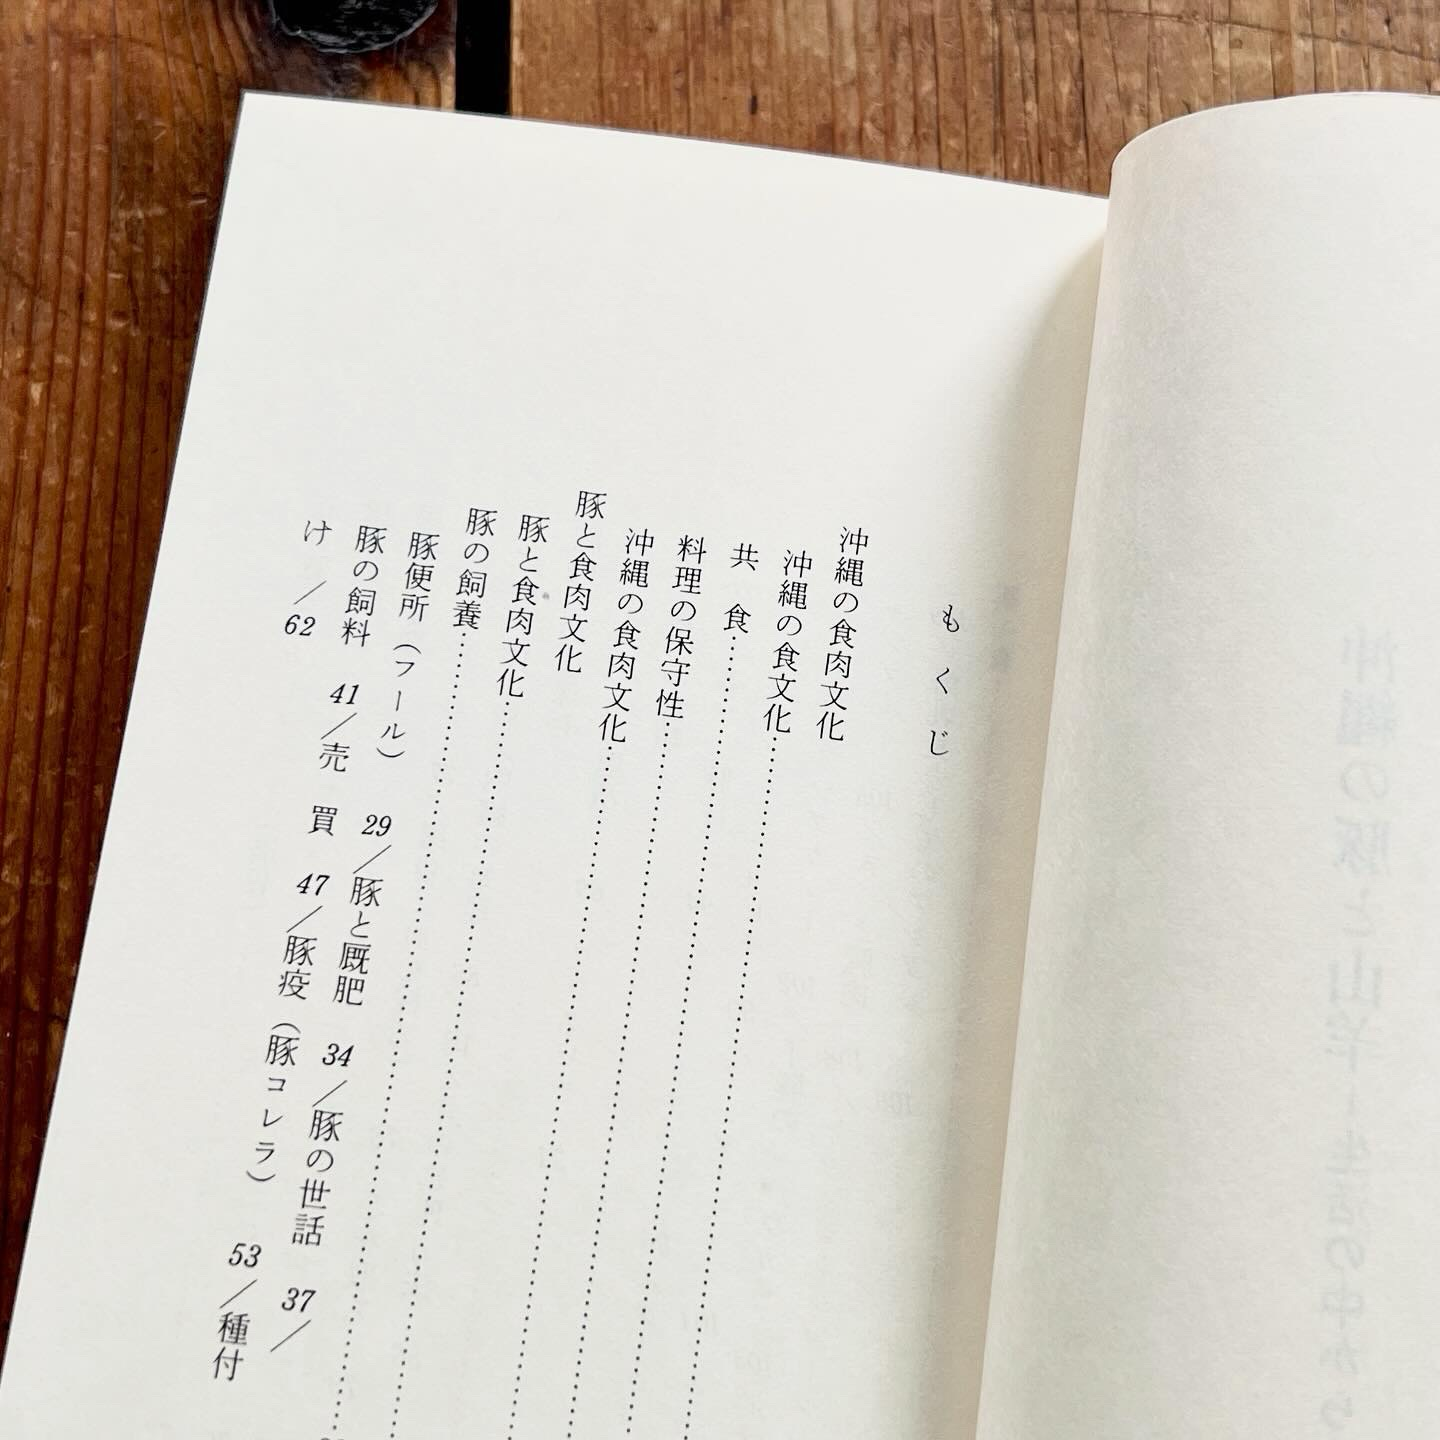 もくじ
沖縄の食肉文化
沖縄の食文化……………………
共　食……………………
料理の保守性……………………
沖縄の食肉文化……………………
豚と食肉文化
豚と食肉文化……………………
豚の飼養……………………
豚便所（フール）　29／豚と厩肥　34／豚の世話　37／
豚の飼料　41／売　買　47／豚疫（豚コレラ）　53／種付
け／62